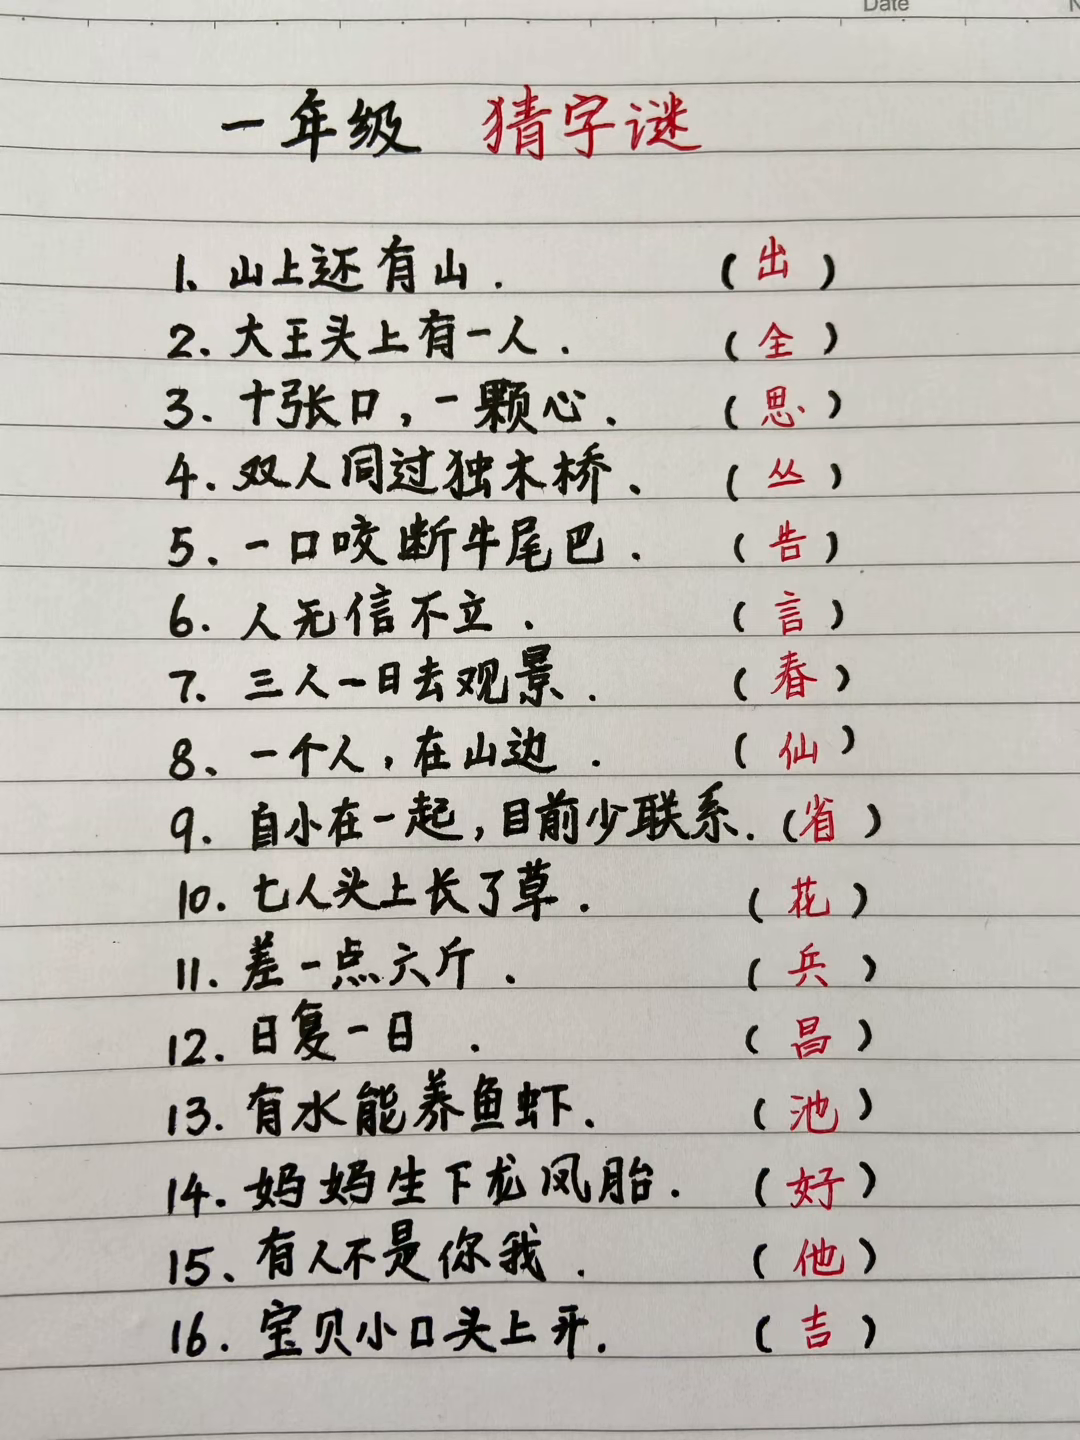 Date
一年级 猜字谜
1、山上还有山. (出)
2. 大王头上有一人. (全)
3. 十张口,一颗心. (思)
4. 双人同过独木桥、 (丛)
5. 一口咬断牛尾巴. (告)
6. 人无信不立. (言)
7. 三人一日去观景. (春)
8、一个人,在山边. (仙)
9. 自小在一起,目前少联系. (省)
10. 七人头上长了草. (花)
11. 差一点六斤. (兵)
12. 日复一日. (昌)
13. 有水能养鱼虾. (池)
14. 妈妈生下龙凤胎. (好)
15、有人不是你我. (他)
16. 宝贝小口头上开. (吉)